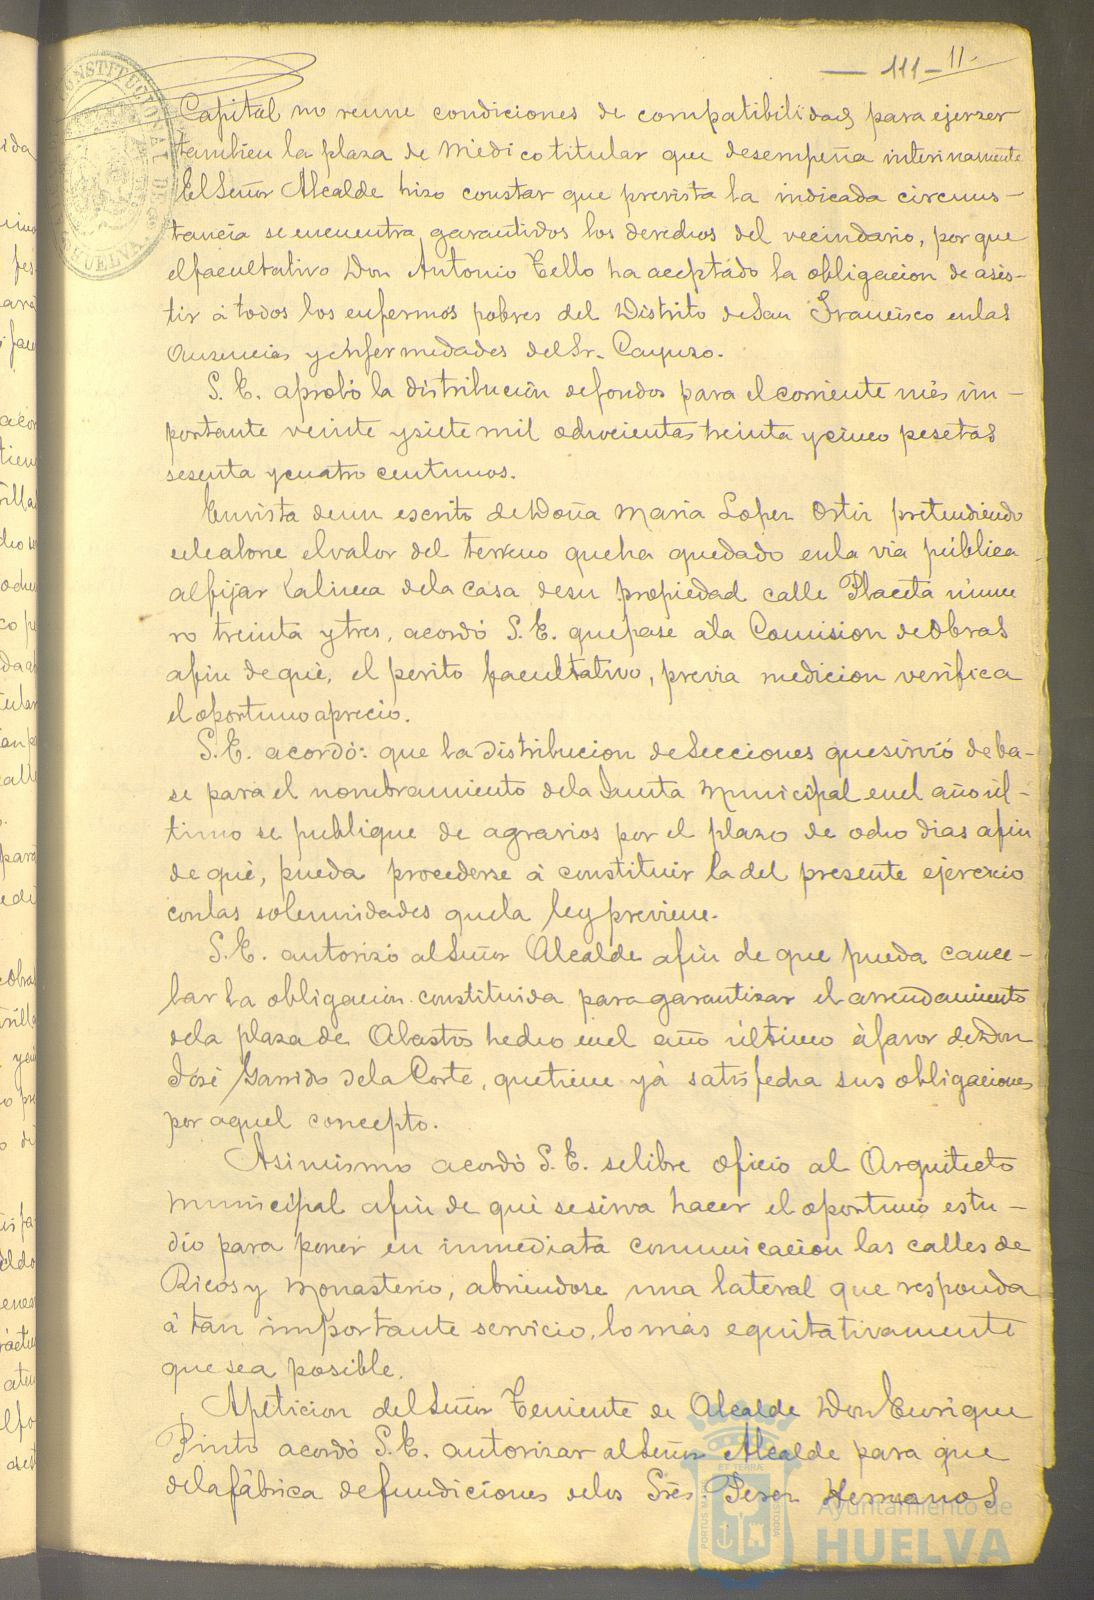 — 111 — 11.
Capital no reune condiciones de compatibilidad para ejerzer
tambien la plaza de Medico titular que desempeña interinamente
El Señor Alcalde hizo constar que prevista la indicada circuns-
tancia se encuentra garantidos los derechos del vecindario, por que
el facultativo Don Antonio Tello ha aceptado la obligacion de asis-
tir á todos los enfermos pobres del Distrito de San Francisco en las
Ausencias y enfermedades del Sr. Cayuso.
S. E. aprobó la distribución de fondos para el corriente més im-
portante veinte y siete mil ochocientas treinta y cinco pesetas
sesenta y cuatro centimos.
En vista de un escrito de Doña Maria Lopez Ortiz pretendiendo
se le abone el valor del terreno que ha quedado en la via pública
al fijar la linea de la casa de su propiedad calle Placeta núme
ro treinta y tres, acordó S. E. que pase á la Comision de Obras
afin de que, el perito facultativo, previa medicion verifica
el oportuno aprecio.
S. E. acordó: que la distribucion de Secciones que sirvió de ba-
se para el nombramiento de la Junta Municipal en el año úl-
timo se publique de agravios por el plazo de ocho dias afin
de qué, pueda procederse á constituir la del presente ejercicio
con las solemnidades que la ley previene.
S. E. autorizó al Señor Alcalde afin de que pueda cance-
lar la obligación constituida para garantizar el arrendamiento
de la plaza de Abastos hecho en el año último á favor de Don
José Garrido de la Corte, que tiene yá satisfecha sus obligaciones
por aquel concepto.
Asimismo acordó S. E. se libre oficio al Arquitecto
municipal afin de qué se sirva hacer el oportuno estu-
dio para poner en inmediata comunicacion las calles de
Ricos y Monasterio, abriendose una lateral que responda
á tan importante servicio, lo más equitativamente
que sea posible.
A peticion del Señor Teniente de Alcalde Don Enrique
Pinto acordó S. E. autorizar al Señor Alcalde para que
de la fábrica de fundiciones de los Srés. Perez Hermanos
CONSTITUCIONAL DE
HUELVA
PORTUS MARIS ET TERRAE CUSTODIA
Ayuntamiento de
HUELVA